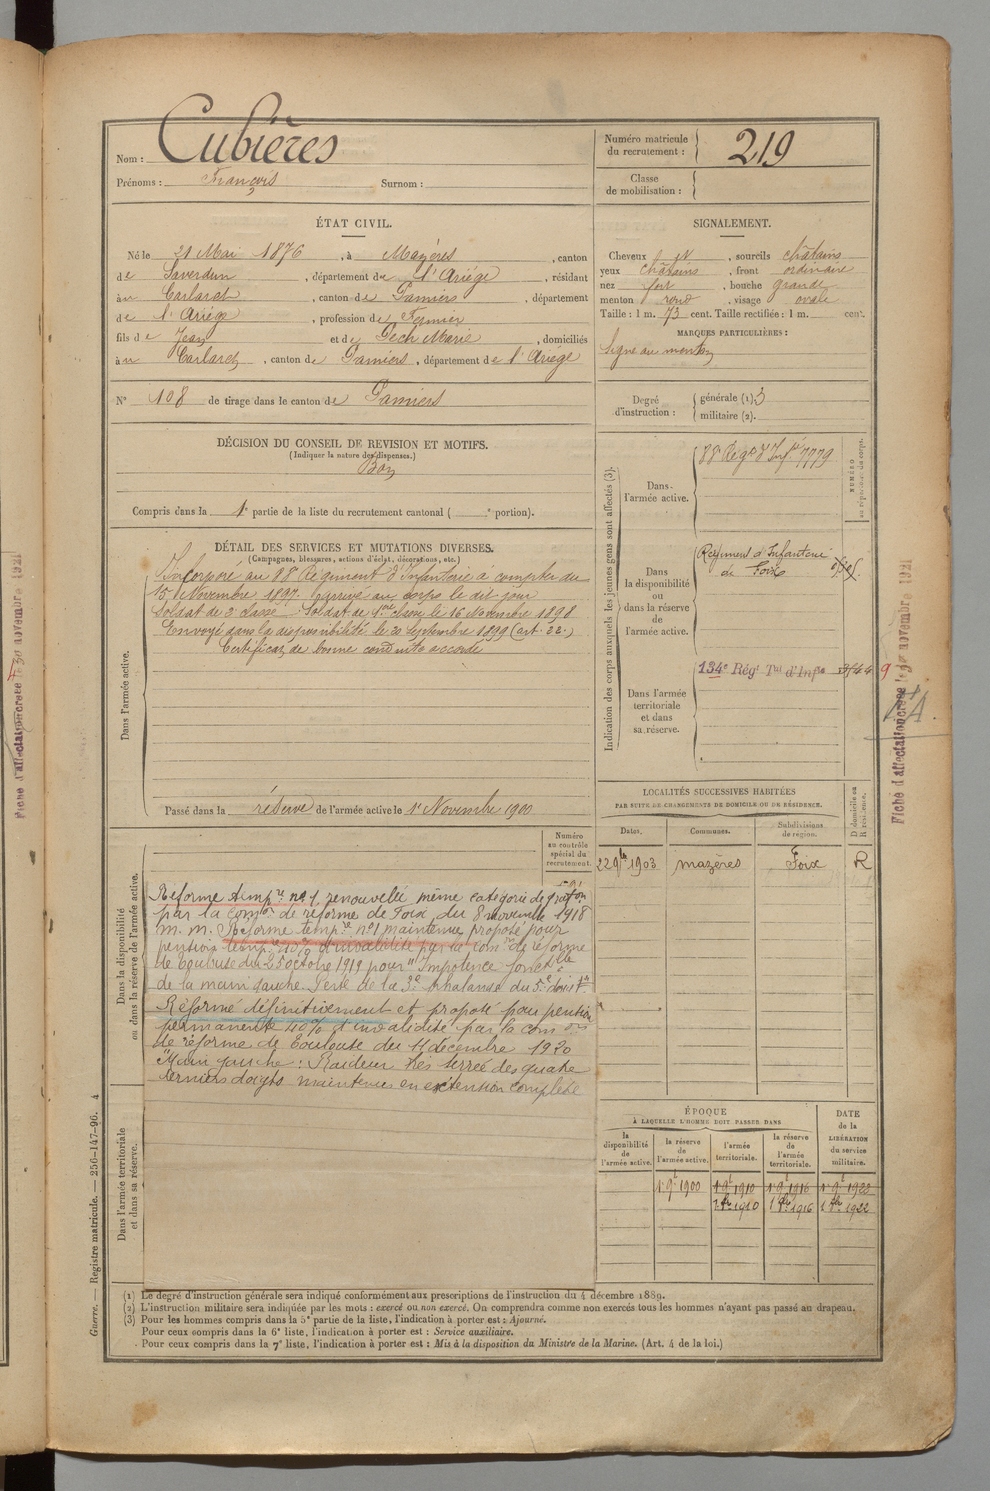 Nom : Cubières
Prénoms : François Surnom :
Numéro matricule du recrutement : 219
Classe de mobilisation :
ÉTAT CIVIL.
Né le 21 Mai 1876, à Mazères, canton
de Saverdun, département de l'Ariége, résidant
à Carlaret, canton de Pamiers, département
de l'Ariége, profession de Fermier
fils de Jean et de Pech Marie, domiciliés
à Carlaret, canton de Pamiers, département de l'Ariége
N° 108 de tirage dans le canton de Pamiers
SIGNALEMENT.
Cheveux, sourcils châtains
yeux châtains, front ordinaire
nez fort, bouche grande
menton rond, visage ovale
Taille : 1 m. 73 cent. Taille rectifiée : 1 m. cent.
MARQUES PARTICULIÈRES :
Signe au menton
Degré d'instruction : générale (1) 3
militaire (2).
DÉCISION DU CONSEIL DE REVISION ET MOTIFS.
(Indiquer la nature des dispenses.)
Bon
Compris dans la 1e partie de la liste du recrutement cantonal ( e portion).
DÉTAIL DES SERVICES ET MUTATIONS DIVERSES.
(Campagnes, blessures, actions d'éclat, décorations, etc.)
Dans l'armée active.
Incorporé au 88e Régiment d'Infanterie à compter du
15 Novembre 1897. arrivé au corps le dit jour
Soldat de 2e classe. Soldat de 1ère classe le 16 Novembre 1898
Envoyé dans la disponibilité le 20 Septembre 1899 (art. 22.)
Certificat de bonne conduite accordé
Passé dans la réserve de l'armée active le 1er Novembre 1900
Indication des corps auxquels les jeunes gens sont affectés (3).
NUMÉRO au répertoire du corps.
Dans l'armée active.
88e Régt d'Infie 7779
Dans la disponibilité ou dans la réserve de l'armée active.
Régiment d'Infanterie
de Foix
Dans l'armée territoriale et dans sa réserve.
134e Régt Tal d'Infie
LOCALITÉS SUCCESSIVES HABITÉES
PAR SUITE DE CHANGEMENTS DE DOMICILE OU DE RÉSIDENCE.
Dates. Communes. Subdivisions de région. D domicile ou R résidence.
1903 Mazères Foix R
Numéro au contrôle spécial du recrutement.
Dans la disponibilité ou dans la réserve de l'armée active.
Réforme tempre n° 1, renouvelée même catégorie de gratifon
par la Comon de réforme de Foix, du 8 novembre 1918
m. m. Réforme tempre n° 1 maintenue proposé pour
pension tempre 40% d'invalidité par la comon de réforme
de Toulouse du 25 octobre 1919 pour "Impotence fonctelle
de la main gauche. Perte de la 3e phalange du 5e doigt.
Réformé définitivement et proposé pour pension
permanente 40% d'invalidité par la comon
de réforme de Toulouse du 11 décembre 1920
"Main gauche : Raideur très serrée des quatre
derniers doigts maintenus en extension complète
Dans l'armée territoriale et dans sa réserve.
ÉPOQUE
À LAQUELLE L'HOMME DOIT PASSER DANS
DATE de la LIBÉRATION du service militaire.
la disponibilité de l'armée active. la réserve de l'armée active. l'armée territoriale. la réserve de l'armée territoriale.
1 9 1900 1 9 1910 1 9 1916 1 9 1922
1910 1916 1922
(1) Le degré d'instruction générale sera indiqué conformément aux prescriptions de l'instruction du 4 décembre 1889.
(2) L'instruction militaire sera indiquée par les mots : exercé ou non exercé. On comprendra comme non exercés tous les hommes n'ayant pas passé au drapeau.
(3) Pour les hommes compris dans la 5e partie de la liste, l'indication à porter est : Ajourné.
Pour ceux compris dans la 6e liste, l'indication à porter est : Service auxiliaire.
Pour ceux compris dans la 7e liste, l'indication à porter est : Mis à la disposition du Ministre de la Marine. (Art. 4 de la loi.)
Guerre. — Registre matricule. — 256-147-96. 4
Fiche d'affectation créée le 30 novembre 1921
Fiche d'affectation créée le 30 novembre 1921